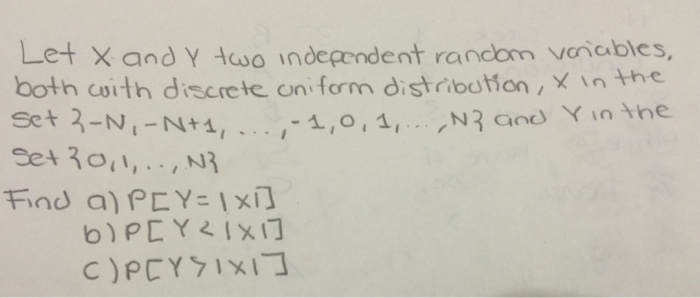 Let X and Y two independent random variables,
both with discrete uniform distribution, X in the
set {-N, -N+1, ..., -1, 0, 1, ..., N} and Y in the
Set {0, 1, .., N}
Find a) P[Y = |X|]
b) P[Y < |X|]
c) P[Y > |X|]